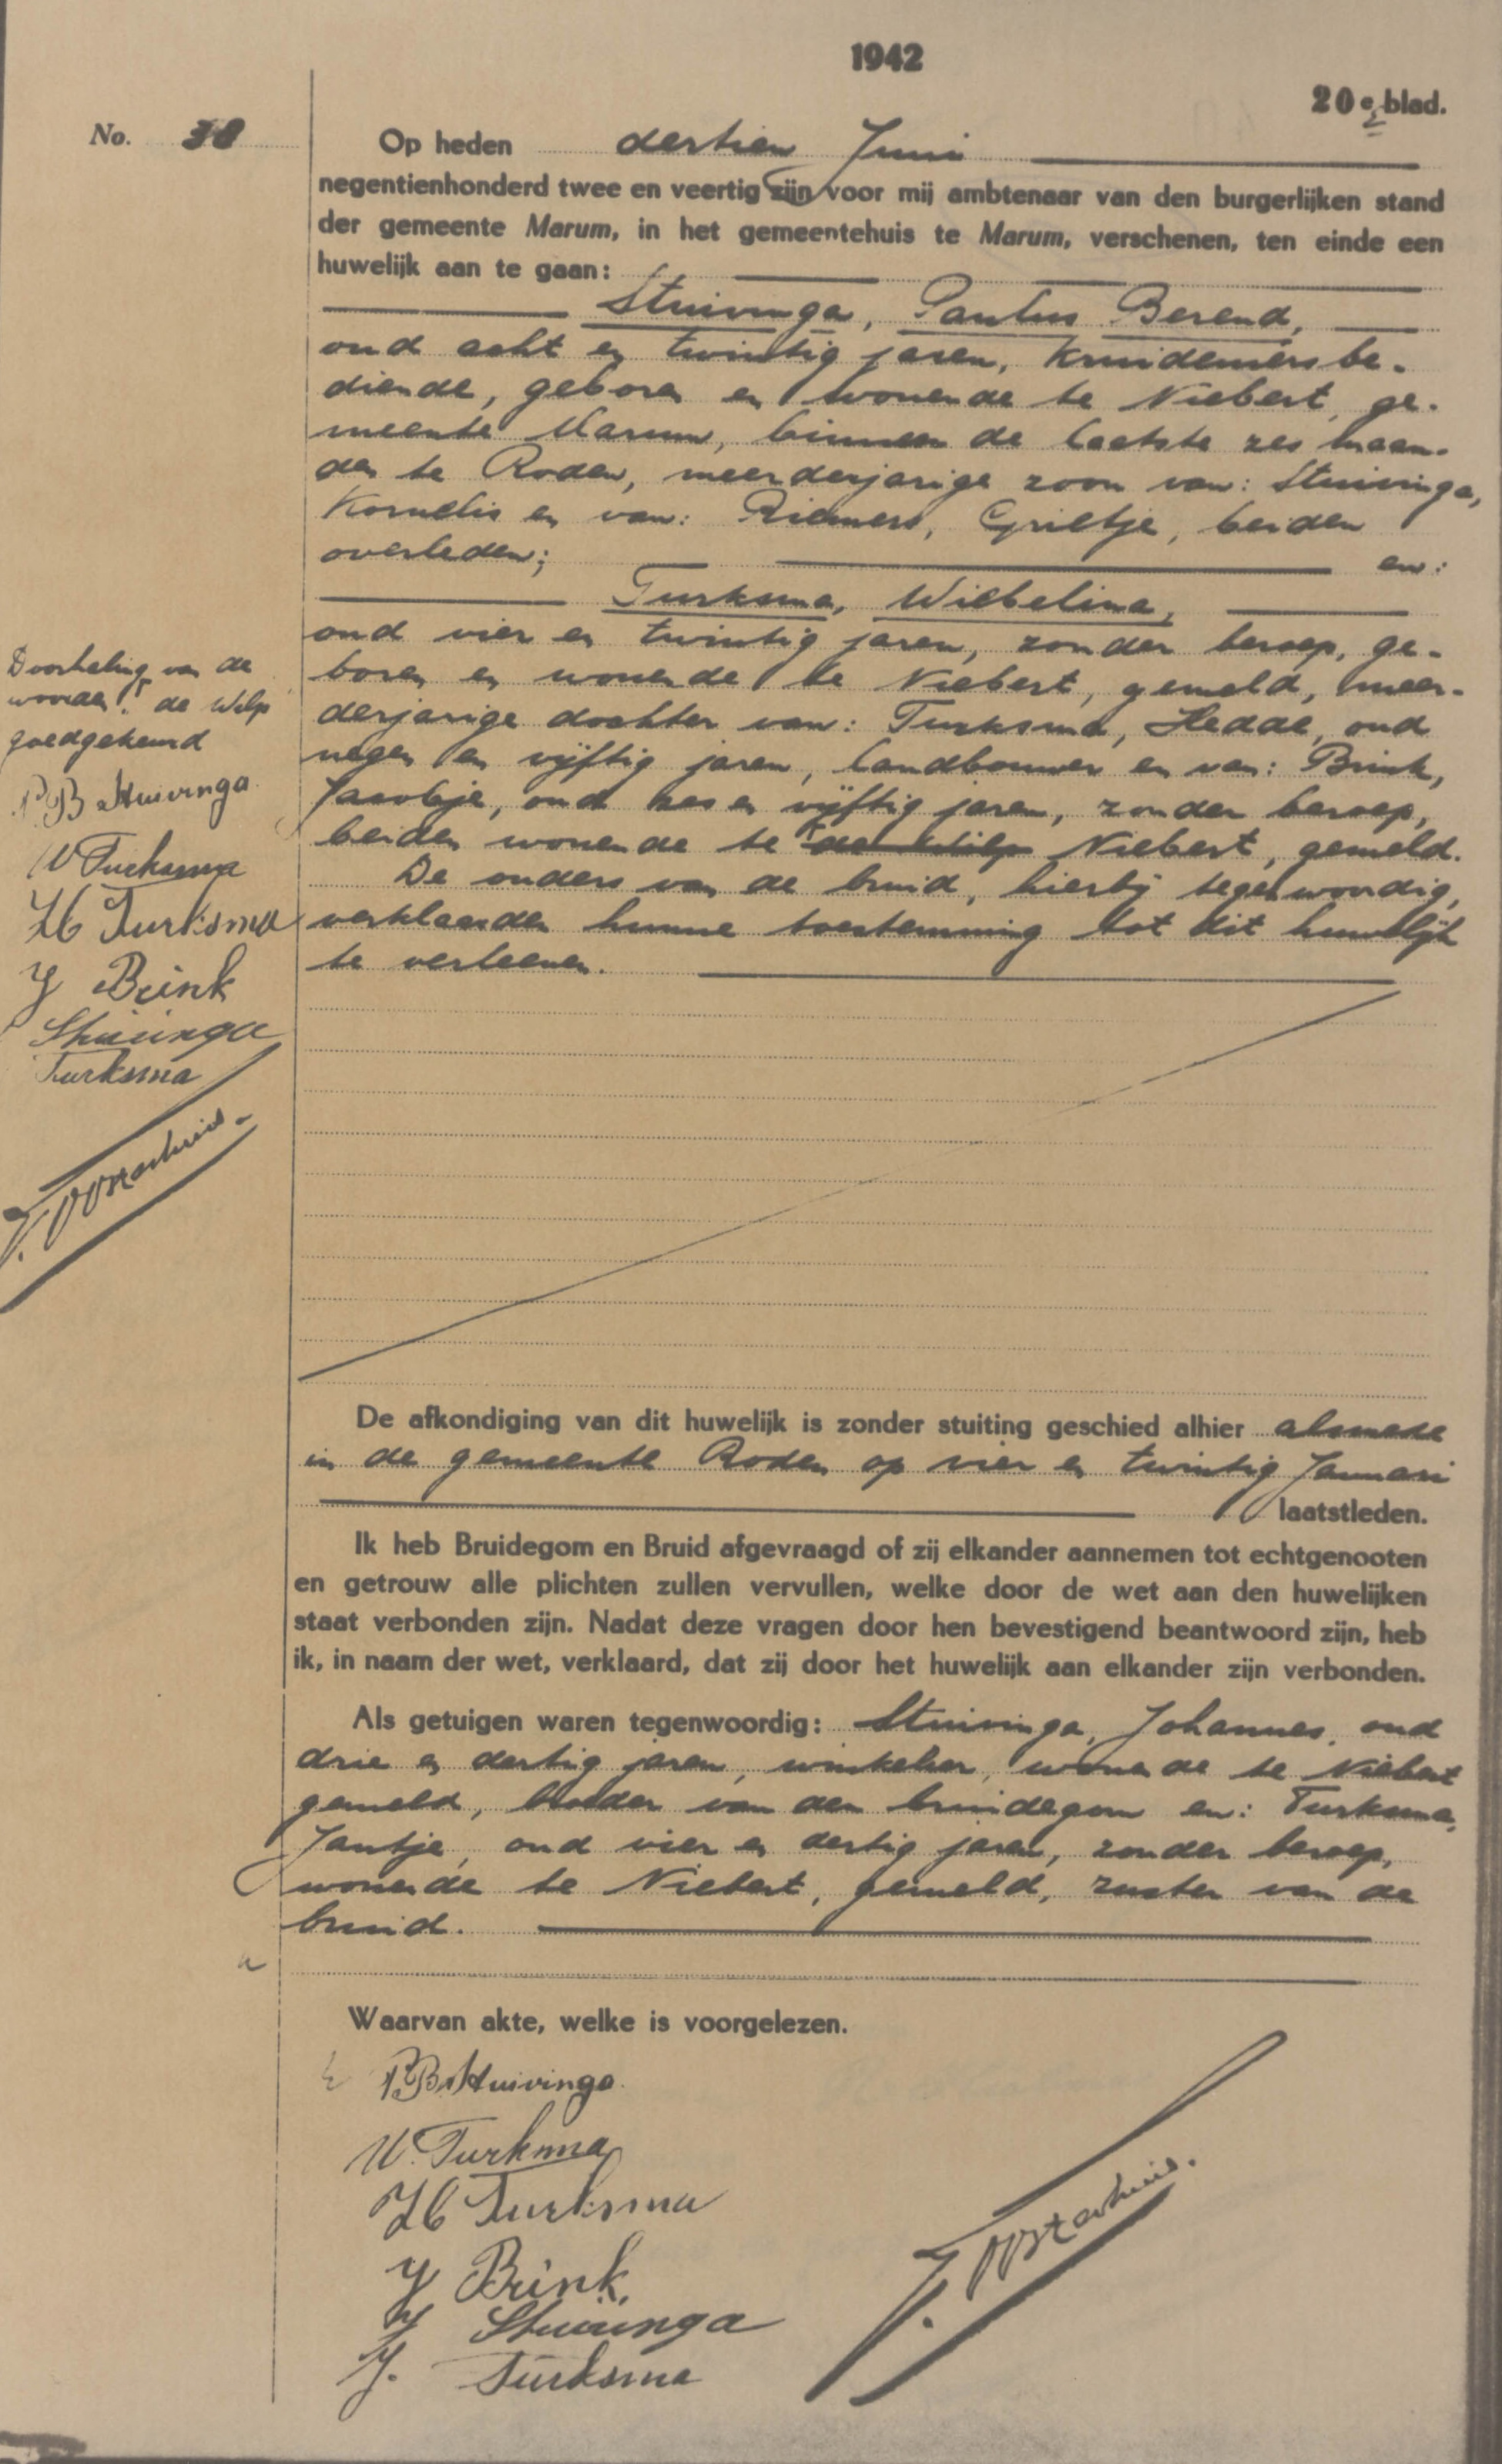 1942
20e blad.
No. 38
Op heden dertien Juni
negentienhonderd twee en veertig zijn voor mij ambtenaar van den burgerlijken stand
der gemeente Marum, in het gemeentehuis te Marum, verschenen, ten einde een
huwelijk aan te gaan:
Stuivinga, Paulus Berend,
oud acht en twintig jaren, kruideniersbe-
diende, geboren en wonende te Niebert, ge-
meente Marum, binnen de laatste zes maan-
den te Roden, meerderjarige zoon van: Stuivinga,
Kornelis en van: Riemers, Grietje, beiden
overleden; en:
Turksma, Wiebelina,
oud vier en twintig jaren, zonder beroep, ge-
boren en wonende te Niebert, gemeld, meer-
derjarige dochter van: Turksma, Hedde, oud
negen en vijftig jaren, landbouwer en van: Brink,
Jacobje, oud zes en vijftig jaren, zonder beroep,
beiden wonende te de Wilp Niebert, gemeld.
De ouders van de bruid, hierbij tegenwoordig,
verklaarden hunne toestemming tot dit huwelijk
te verleenen.
Doorhaling van de
woorden: de Wilp
goedgekeurd
P B Stuivinga
W Turksma
H Turksma
J Brink
Stuivinga
Turksma
J. Oosterhuis.
De afkondiging van dit huwelijk is zonder stuiting geschied alhier alsmede
in de gemeente Roden op vier en twintig Januari
laatstleden.
Ik heb Bruidegom en Bruid afgevraagd of zij elkander aannemen tot echtgenooten
en getrouw alle plichten zullen vervullen, welke door de wet aan den huwelijken
staat verbonden zijn. Nadat deze vragen door hen bevestigend beantwoord zijn, heb
ik, in naam der wet, verklaard, dat zij door het huwelijk aan elkander zijn verbonden.
Als getuigen waren tegenwoordig: Stuivinga, Johannes, oud
drie en dertig jaren, winkelier, wonende te Niebert
gemeld, broeder van den bruidegom en: Turksma,
Jantje, oud vier en dertig jaren, zonder beroep,
wonende te Niebert, gemeld, zuster van de
bruid.
Waarvan akte, welke is voorgelezen.
P B Stuivinga.
W. Turksma
H Turksma
J Brink
J Stuivinga
J. Turksma
J. Oosterhuis.